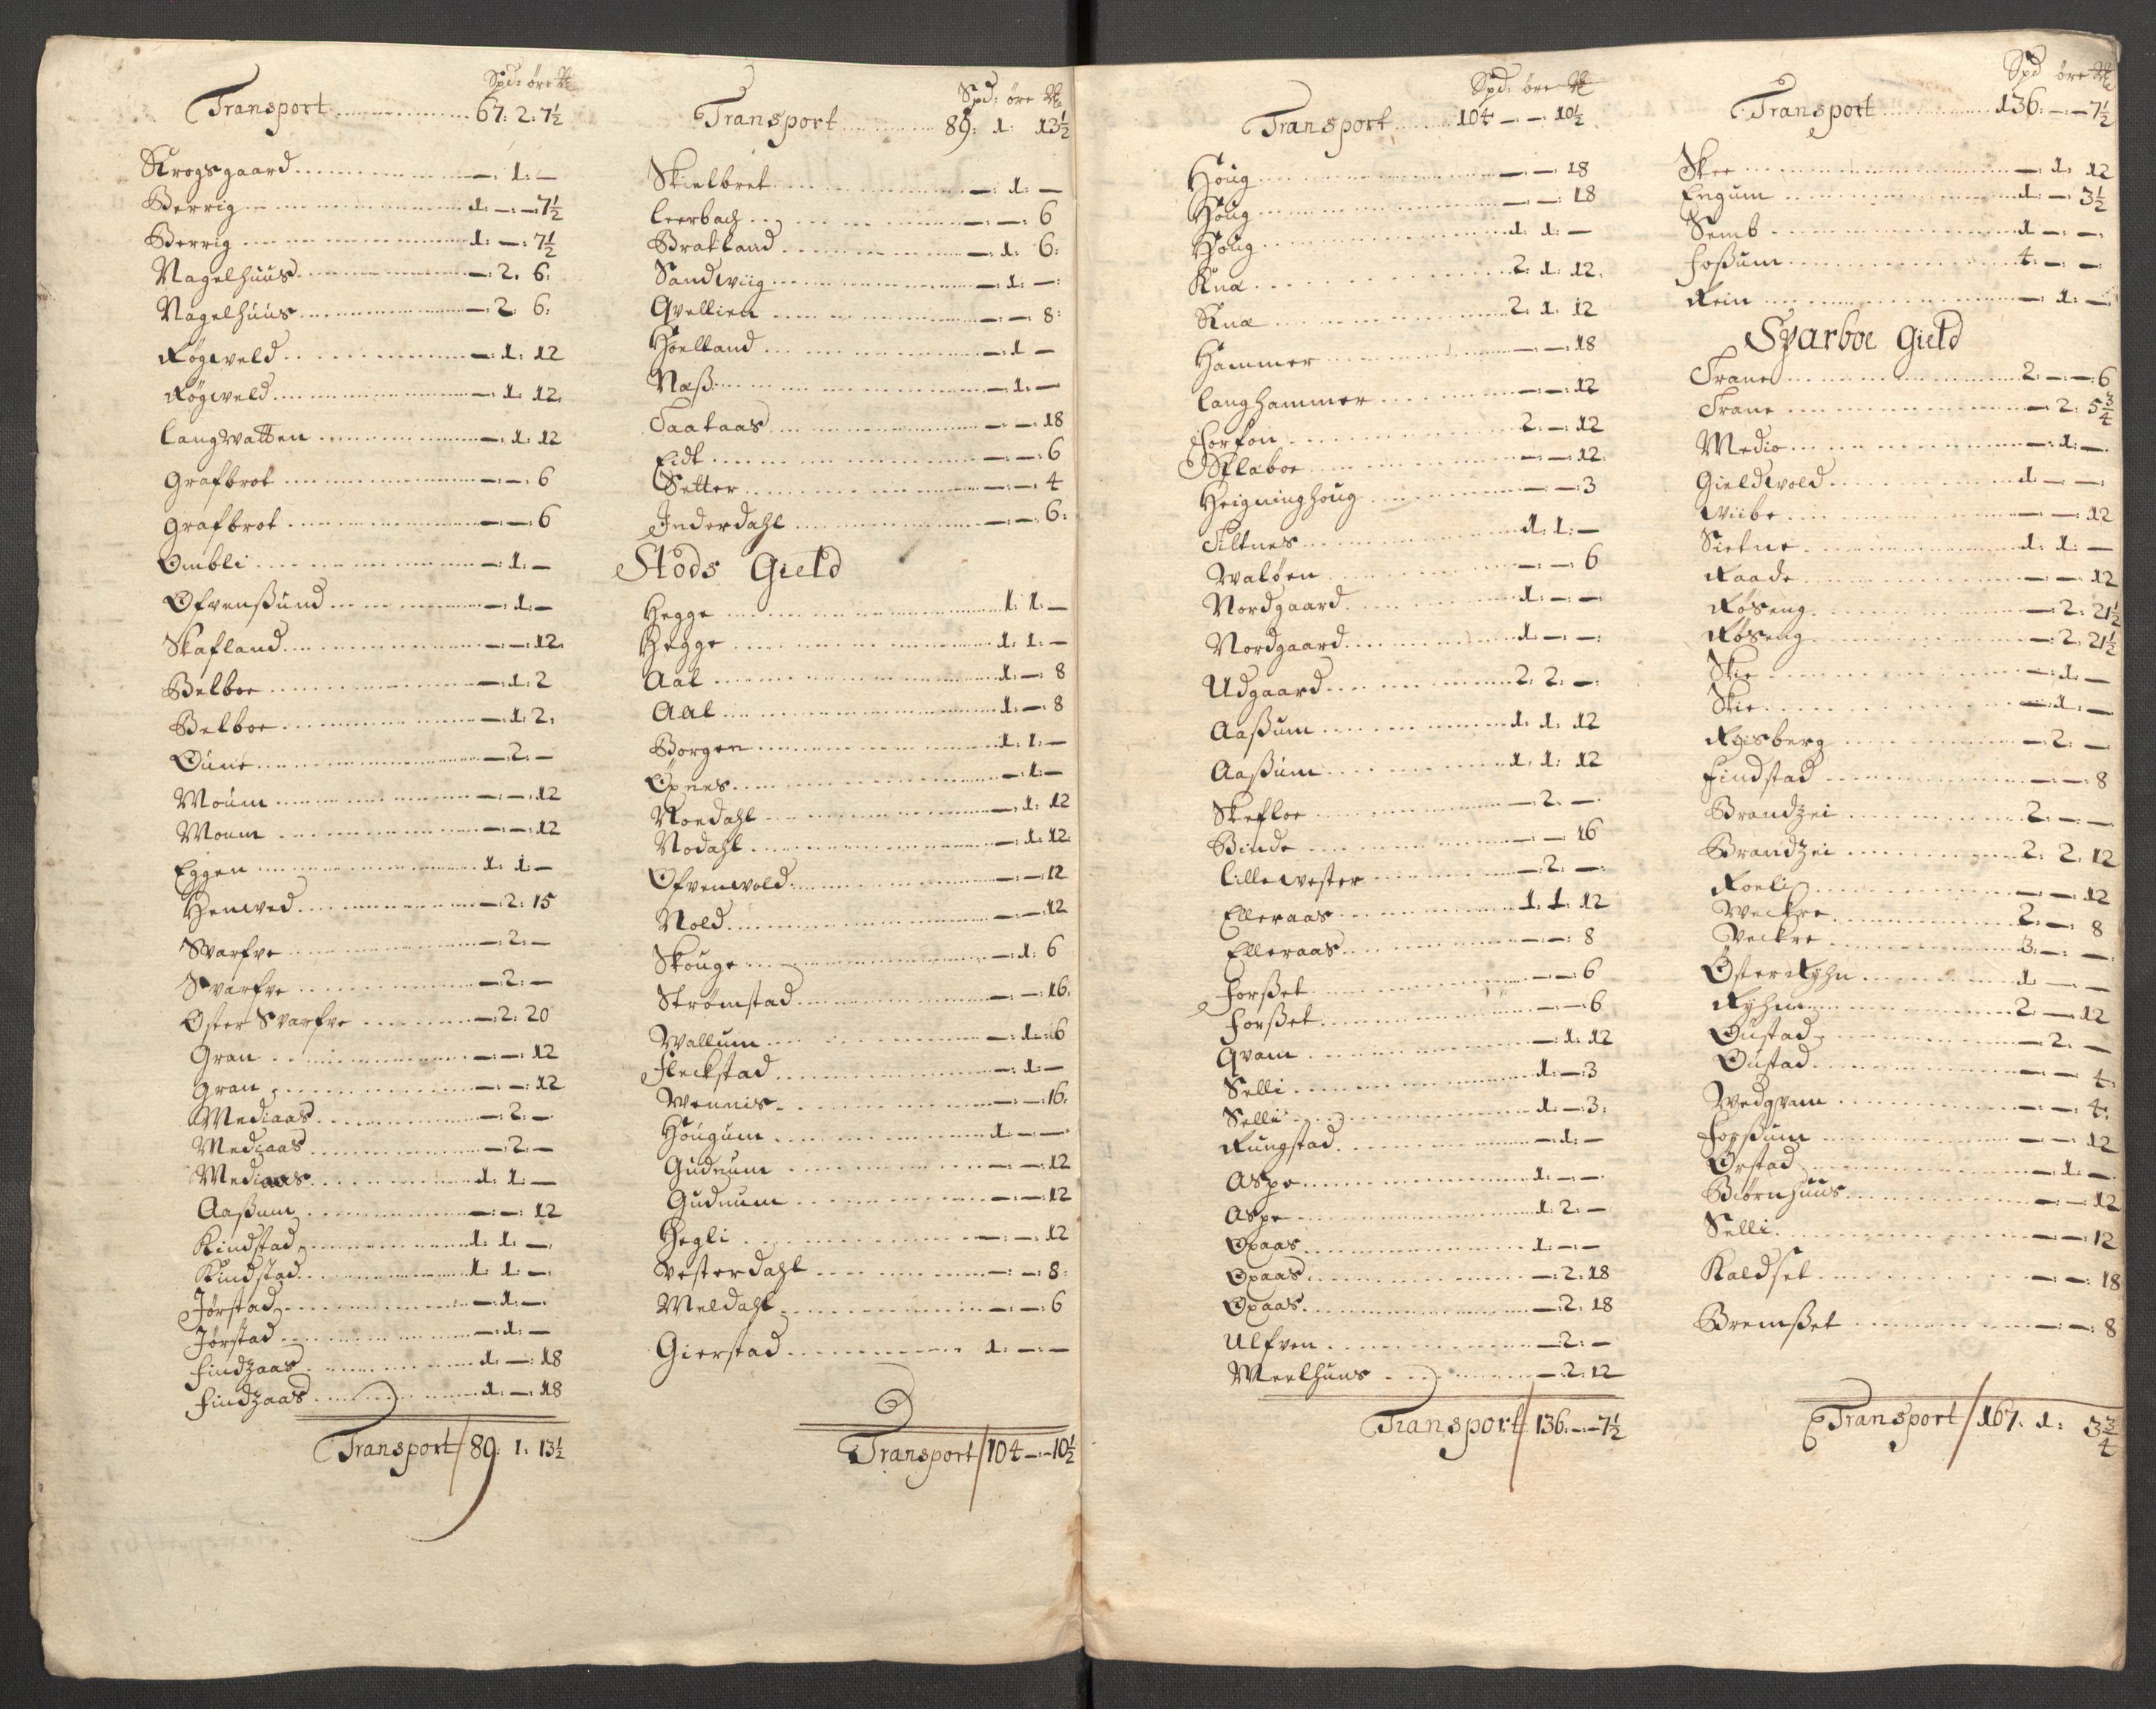 Spd: öre
Transport 67: 2: 7½
Krogsgaard —: 1: —
Berrig 1: —: 7½
Berrig 1: —: 7½
Nagelhuus —: 2. 6:
Nagelhuus —: 2. 6:
Røgweld —: 1: 12
Røgweld —: 1: 12.
Langwatten —: 1: 12
Grafbrot —: —: 6
Grafbrot —: —: 6
Ombli —: 1: —
Ofvenßund —: 1: —
Skafland —: —: 12.
Belboe —: 1: 2
Belboe —: 1: 2:
Oune —: 2: —
Moum —: —: 12
Moum —: —: 12
Eggen 1: 1: —
Henwed —: 2: 15
Svarfve —: 2: —
Svarfve —: 2: —
Oster Svarfve —: 2: 20
Gran —: —: 12
Gran —: —: 12
Mediaas —: 2: —
Mediaas —: 2: —
Mediaas 1: 1: —
Aaßum —: —: 12
Kindstad 1: 1: —
Kindstad 1: 1: —
Jørstad —: 1: —
Jørstad —: 1: —
Findzaas 1: —: 18
Findzaas 1: —: 18
Transport 89: 1: 13½
Spd: öre
Transport 89: 1: 13½
Skielbret —: 1: —
Leerbach —: —: 6
Bratland —: 1: 6:
Sandwiig —: 1: —:
Qvellien —: —: 8:
Hoelland —: 1 —
Naß —: 1: —
Taataas —: —: 18
Eidt —: —: 6
Setter —: —: 4
Inderdahl —: —: 6:
Stods Gield
Hegge 1: 1: —
Hegge 1: 1: —
Aal 1: —: 8
Aal 1: —: 8
Borgen 1: 1: —
Opnes —: 1: —
Roedahl —: 1: 12
Nodahl —: 1: 12
Ofvenwold —: —: 12
Nold —: —: 12
Skouge —: 1: 6
Strømstad —: —: 16.
Wallum —: 1: 16
Fleckstad —: 1: —
Wennis —: —: 16:
Hougum 1: —: —
Gudnum —: —: 12
Gudnum —: —: 12
Hegli —: —: 12
Vesterdahl —: —: 8:
Meldahl —: —: 6
Gierstad 1: —: —
Transport 104 —: —: 10½
Spd: öre
Transport 104 —: —: 10½
Houg —: —: 18
Houg —: —: 18
Houg 1: 1: —
Knæ 2: 1: 12.
Knæ 2: 1: 12
Hammer —: —: 18
Langhammer —: —: 12
Forfon 2: —: 12
Sklaboe —: —: 12.
Heigninghoug —: —: 3
Tiltnes 1: 1: —
Waløen —: —: 6
Nordgaard 1: —: —
Nordgaard 1: —: —:
Udgaard 2: 2: —:
Aaßum 1: 1: 12
Aaßum 1: 1: 12
Skefloe —: 2: —
Binde —: —: 16
Lillewester —: 2: —:
Elleraas 1. 1: 12
Elleraas —: —: 8
Forßet —: —: 6
Forßet —: —: 6
Qvam —: 1: 12
Selli 1: —: 3
Selli 1: —: 3:
Rungstad —: 1: —
Aspe 1: —: —
Aspe 1: 2: —
Opaas 1: —: —
Opaas —: 2: 18
Opaas —: 2: 18
Ulfven —: 2: —
Meelhuus —: 2: 12
Transport 136: —: —7½
Spd öre
Transport 136: —: —7½
Skee —: 1: 12
Engum 1: —: 3½
Semb 1: —: —:
Foßum 4: —: —
Rein —: 1: —:
Sparboe Gield
Trane 2: —: —: 6
Trane —: 2: 5¾
Medio —: 1: —
Gieldwold 1: —: —:
Wiibe —: —: 12
Sietne 1: 1: —
Raade —: —: 12
Røseng —: 2: 21½
Røseng —: 2: 21½
Skie —: 1: —
Skie —: 1: —
Rosberg —: 2: —
Findstad —: —: 8
Brandzei 2: —: —
Brandzei 2: 2: 12
Roeli —: —: 12
Weckre 2: —: 8
Veckre 3: —: —
Østerryhn 1: —: —
Ryhn 2: —: 12
Oustad —: 2: —
Oustad —: —: 4:
Wedqvam —: —: 4:
Forßum —: —: 12
Orstad —: 1: —
Biørnhuus —: —: 12
Selli —: —: 12
Kaldset —: —: 18
Bremßet —: —: 8
Transport 167: 1: 3¾